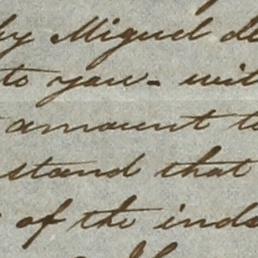 by Miguel de
to you - wit
amount to
stand that
of the inds